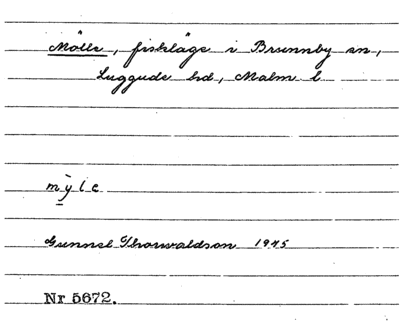 Mölle, fiskläge i Brunnby sn,
Luggude hd, Malm l
mỳle
Gunnel Thorwaldson 1945
Nr 5672.